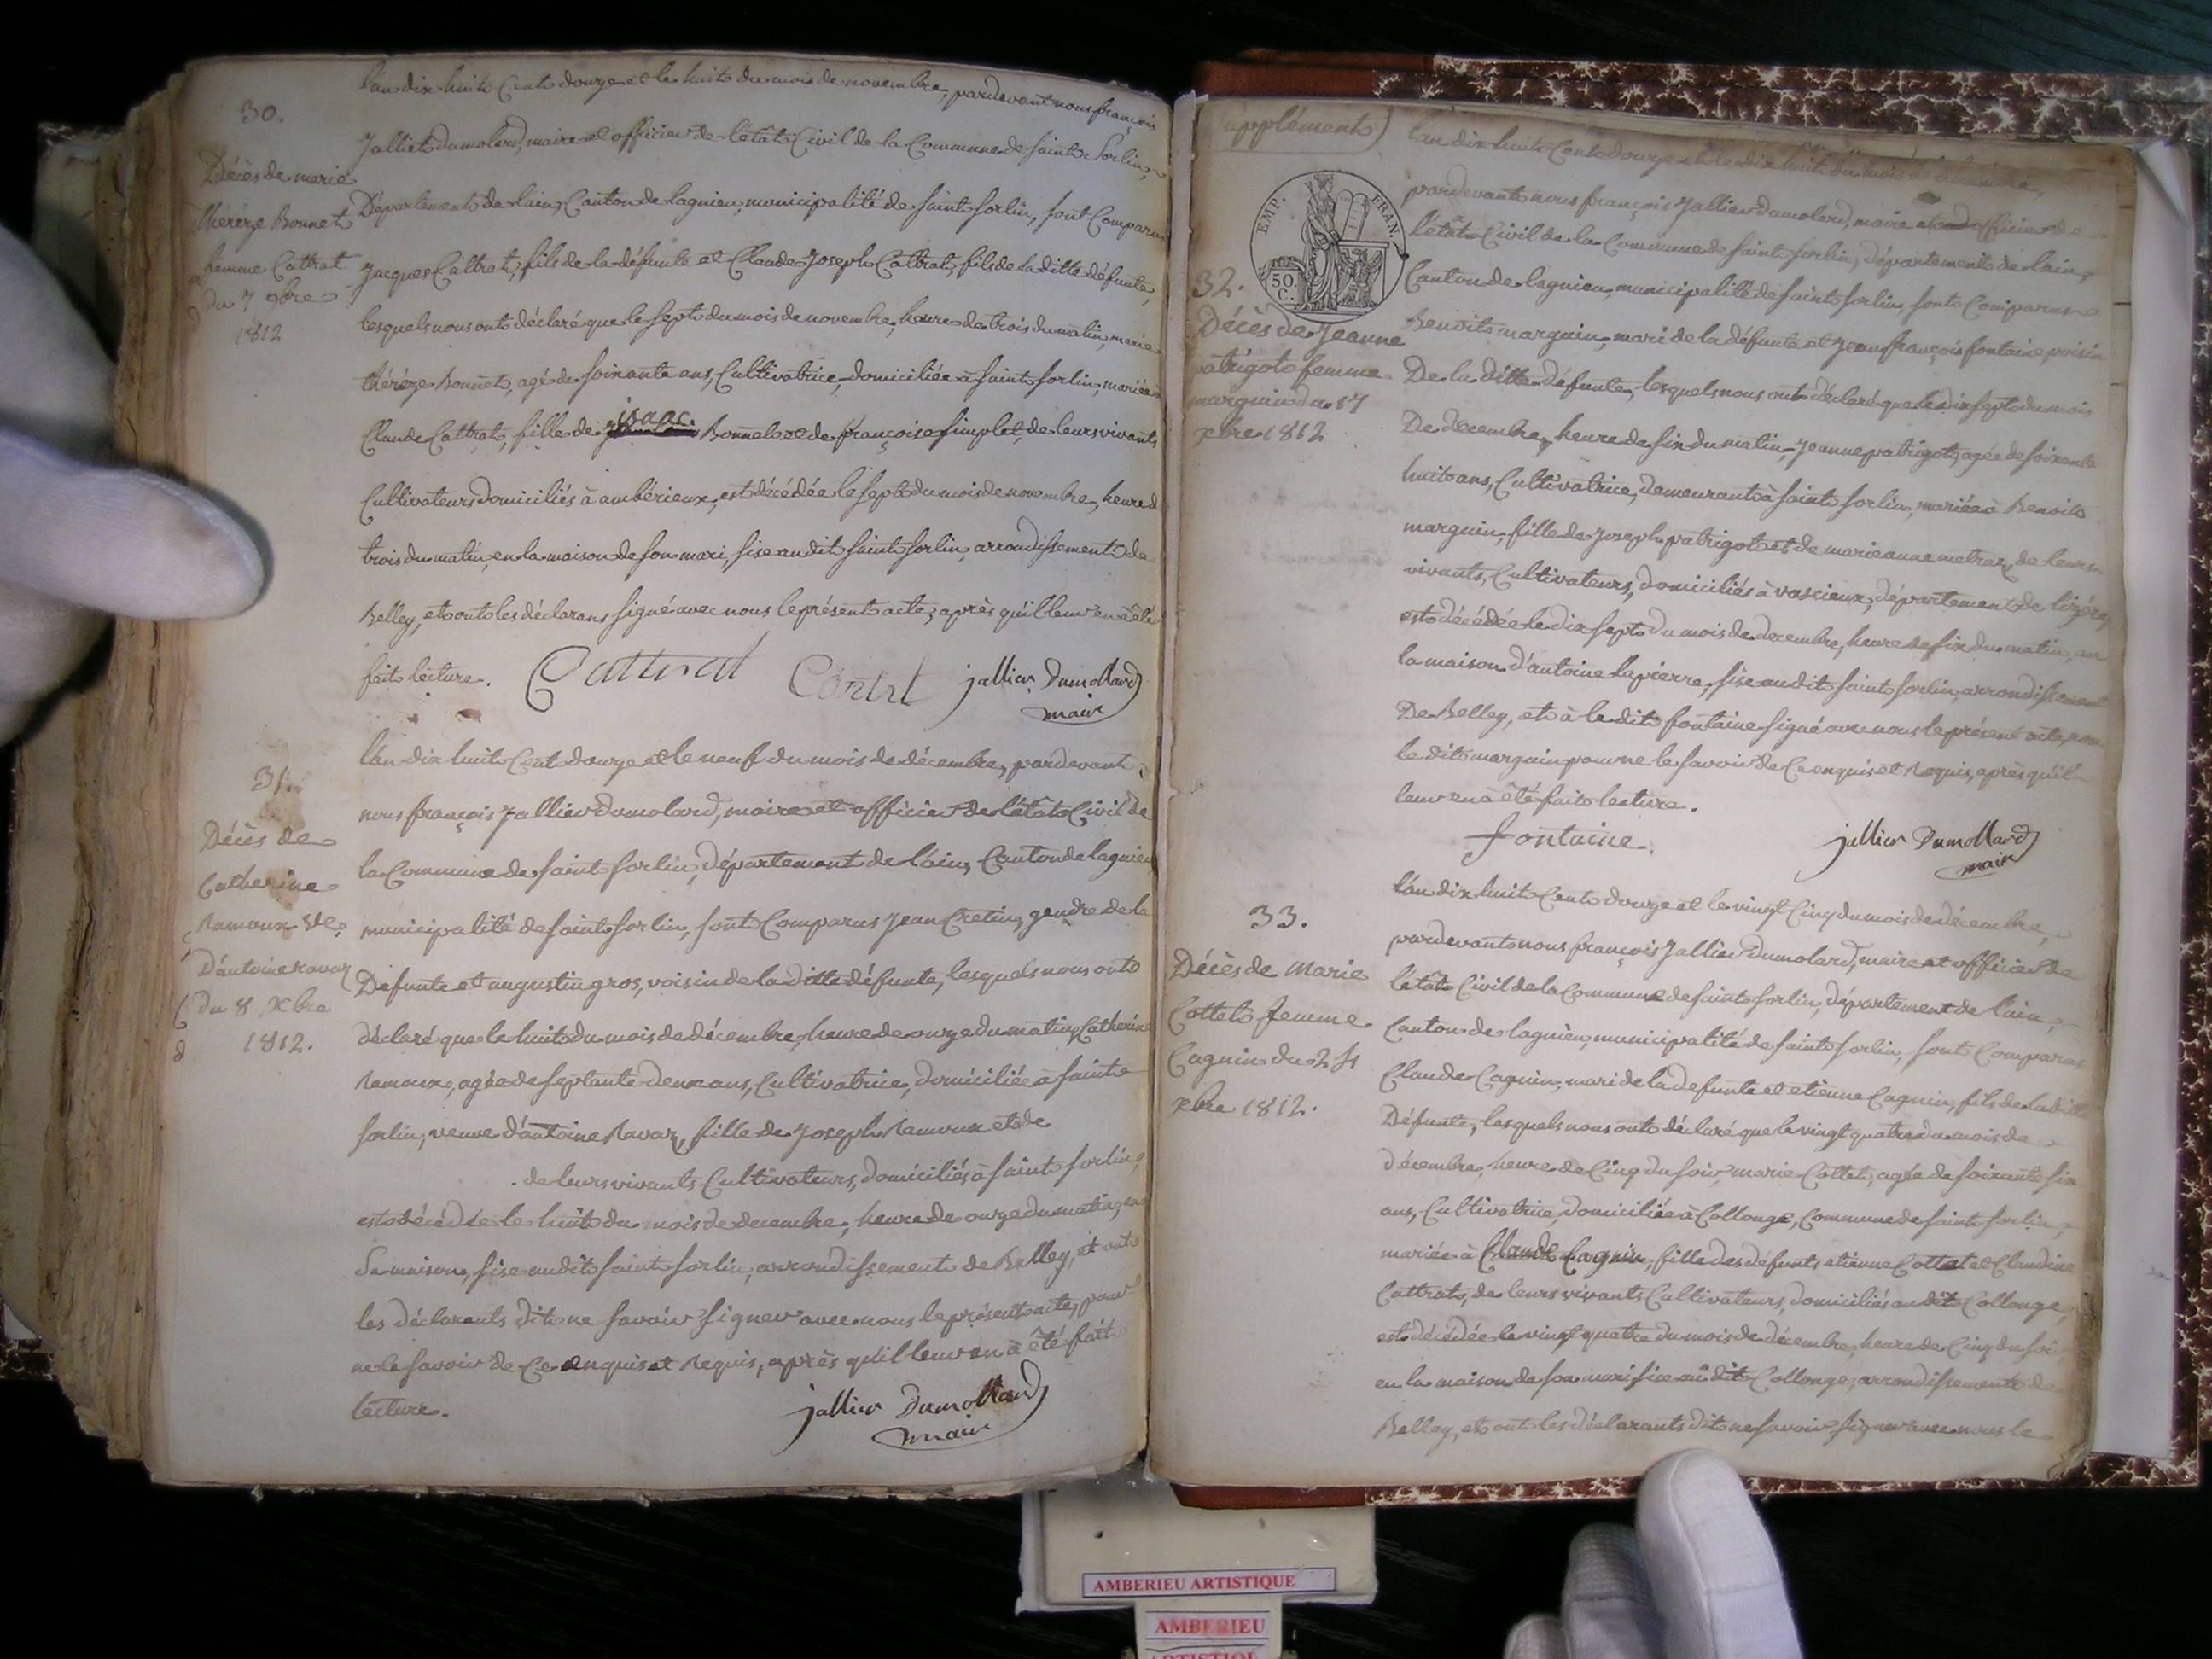 30.
Décès de marie
thérèze Bonnet
femme Cattrat
du 7 9bre
1812
l'an dix huit Cent douze et le huit du mois de novembre, pardevant nous françois
Jallier dumolard, maire et officier de l'êtât Civil de la Commune de saint Sorlin,
Département de l'ain, Canton de lagnieu, municipalité de saint sorlin, sont Comparus
Jacques Cattrat, fils de la défunte et Claude Joseph Cattrat, fils de la ditte défunte,
lesquels nous ont déclaré que le sept du mois de novembre, heure de trois du matin, marie
thérèze Bonnet, agé de soixante ans, Cultivatrice, domiciliée à saint sorlin, mariée
Claude Cattrat, fille de isaac Bonnet et de françoise simplet, de leurs vivants
Cultivateurs domiciliés à ambérieux, est décédée le sept du mois de novembre, heure d
trois du matin, en la maison de son mari, sise au dit saint sorlin, arrondissement de
Belley, et ont les déclarans signé avec nous le présent acte, après qu'il leur en à été
fait lecture. Cattrat jallier Dumollard
maire
31.
Décès de
Catherine
Ramoux Ve
d'antoine ravaz
du 8 Xbre
1812.
l'an dix huit Cent douze et le neuf du mois de décembre, pardevant
nous françois Jallier dumolard, maire et officier de l'êtât Civil de
la Commune de saint sorlin, département de l'ain, Canton de lagnieu
municipalité de saint sorlin, sont Comparus Jean Cretin, gendre de la
Défunte et augustin gros, voisin de la ditte défunte, lesquels nous ont
déclaré que le huit du mois de décembre, heure de onze du matin, Catherine
Ramoux, agée de septante deux ans, Cultivatrice, domiciliée à saint
sorlin, veuve d'antoine Ravaz, fille de Joseph Ramoux et de
de leurs vivants Cultivateurs, domiciliés à saint sorlin,
est décédée le huit du mois de decembre, heure de onze du matin, en
Sa maison, sise au dit saint sorlin, arrondissement de Belley, et ont
les déclarants dit ne savoir signer avec nous le présent acte, pour
ne le savoir de Ce enquis et Requis, après qu'il leur en à été fait
lecture. jallier Dumollard
maire
supplément)
EMP. FRAN.
50.
C.
32.
Décès de Jeanne
patrigot femme
marguin du 17
xbre 1812
l'an dix huit Cent douze et le dix huit du mois de décembre,
pardevant nous françois Jallier dumolard, maire et officier de
l'êtât Civil de la Commune de saint sorlin, département de l'ain,
Canton de lagnieu, municipalité de saint sorlin, sont Comparus
Benoit marguin, mari de la défunte et Jean françois fontaine, voisin
De la ditte défunte, lesquels nous ont déclaré que le dix sept du mois
De decembre, heure de six du matin, Jeanne patrigot, agée de soixante
huit ans, Cultivatrice, demeurant à saint sorlin, mariée à Benoit
marguin, fille de Joseph patrigot et de marie anne metraz, de leurs
vivants, Cultivateurs, domiciliés à vascieux, département de lizére,
est décédée le dix sept du mois de decembre, heure de six du matin, en
la maison d'antoine lapierre, sise au dit saint sorlin, arrondissement
De Belley, et à le dit fontaine signé avec nous le présent acte, non
le dit marguin pour ne le savoir de Ce enquis et Requis, après qu'il
leur en à êté fait lecture.
fontaine. jallier Dumollard
maire
33.
Décès de Marie
Cottet femme
Cagnin du 24
xbre 1812.
l'an dix huit Cent douze et le vingt Cinq du mois de décembre,
pardevant nous françois Jallier dumolard, maire et officier de
l'êtât Civil de la Commune de saint sorlin, département de l'ain,
Canton de lagnieu, municipalité de saint sorlin, sont Comparus
Claude Cagnin, mari de la defunte et etienne Cagnin, fils de la ditte
Défunte, lesquels nous ont déclaré que le vingt quatre du mois de
décembre, heure de Cinq du soir, marie Cottet, agée de soixante six
ans, Cultivatrice, domiciliée à Collonge, Commune de saint sorlin,
mariée à Claude Cagnin, fille des défunts etienne Cottet et Claudine
Cattrat, de leurs vivants Cultivateurs, domiciliés au dit Collonge,
est décédée le vingt quatre du mois de décembre, heure de Cinq du soir
en la maison de son mari sise au dit Collonge, arrondissement de
Belley, et ont les déclarants dit ne savoir signer avec nous le
AMBERIEU ARTISTIQUE
AMBERIEU
ARTISTIQUE